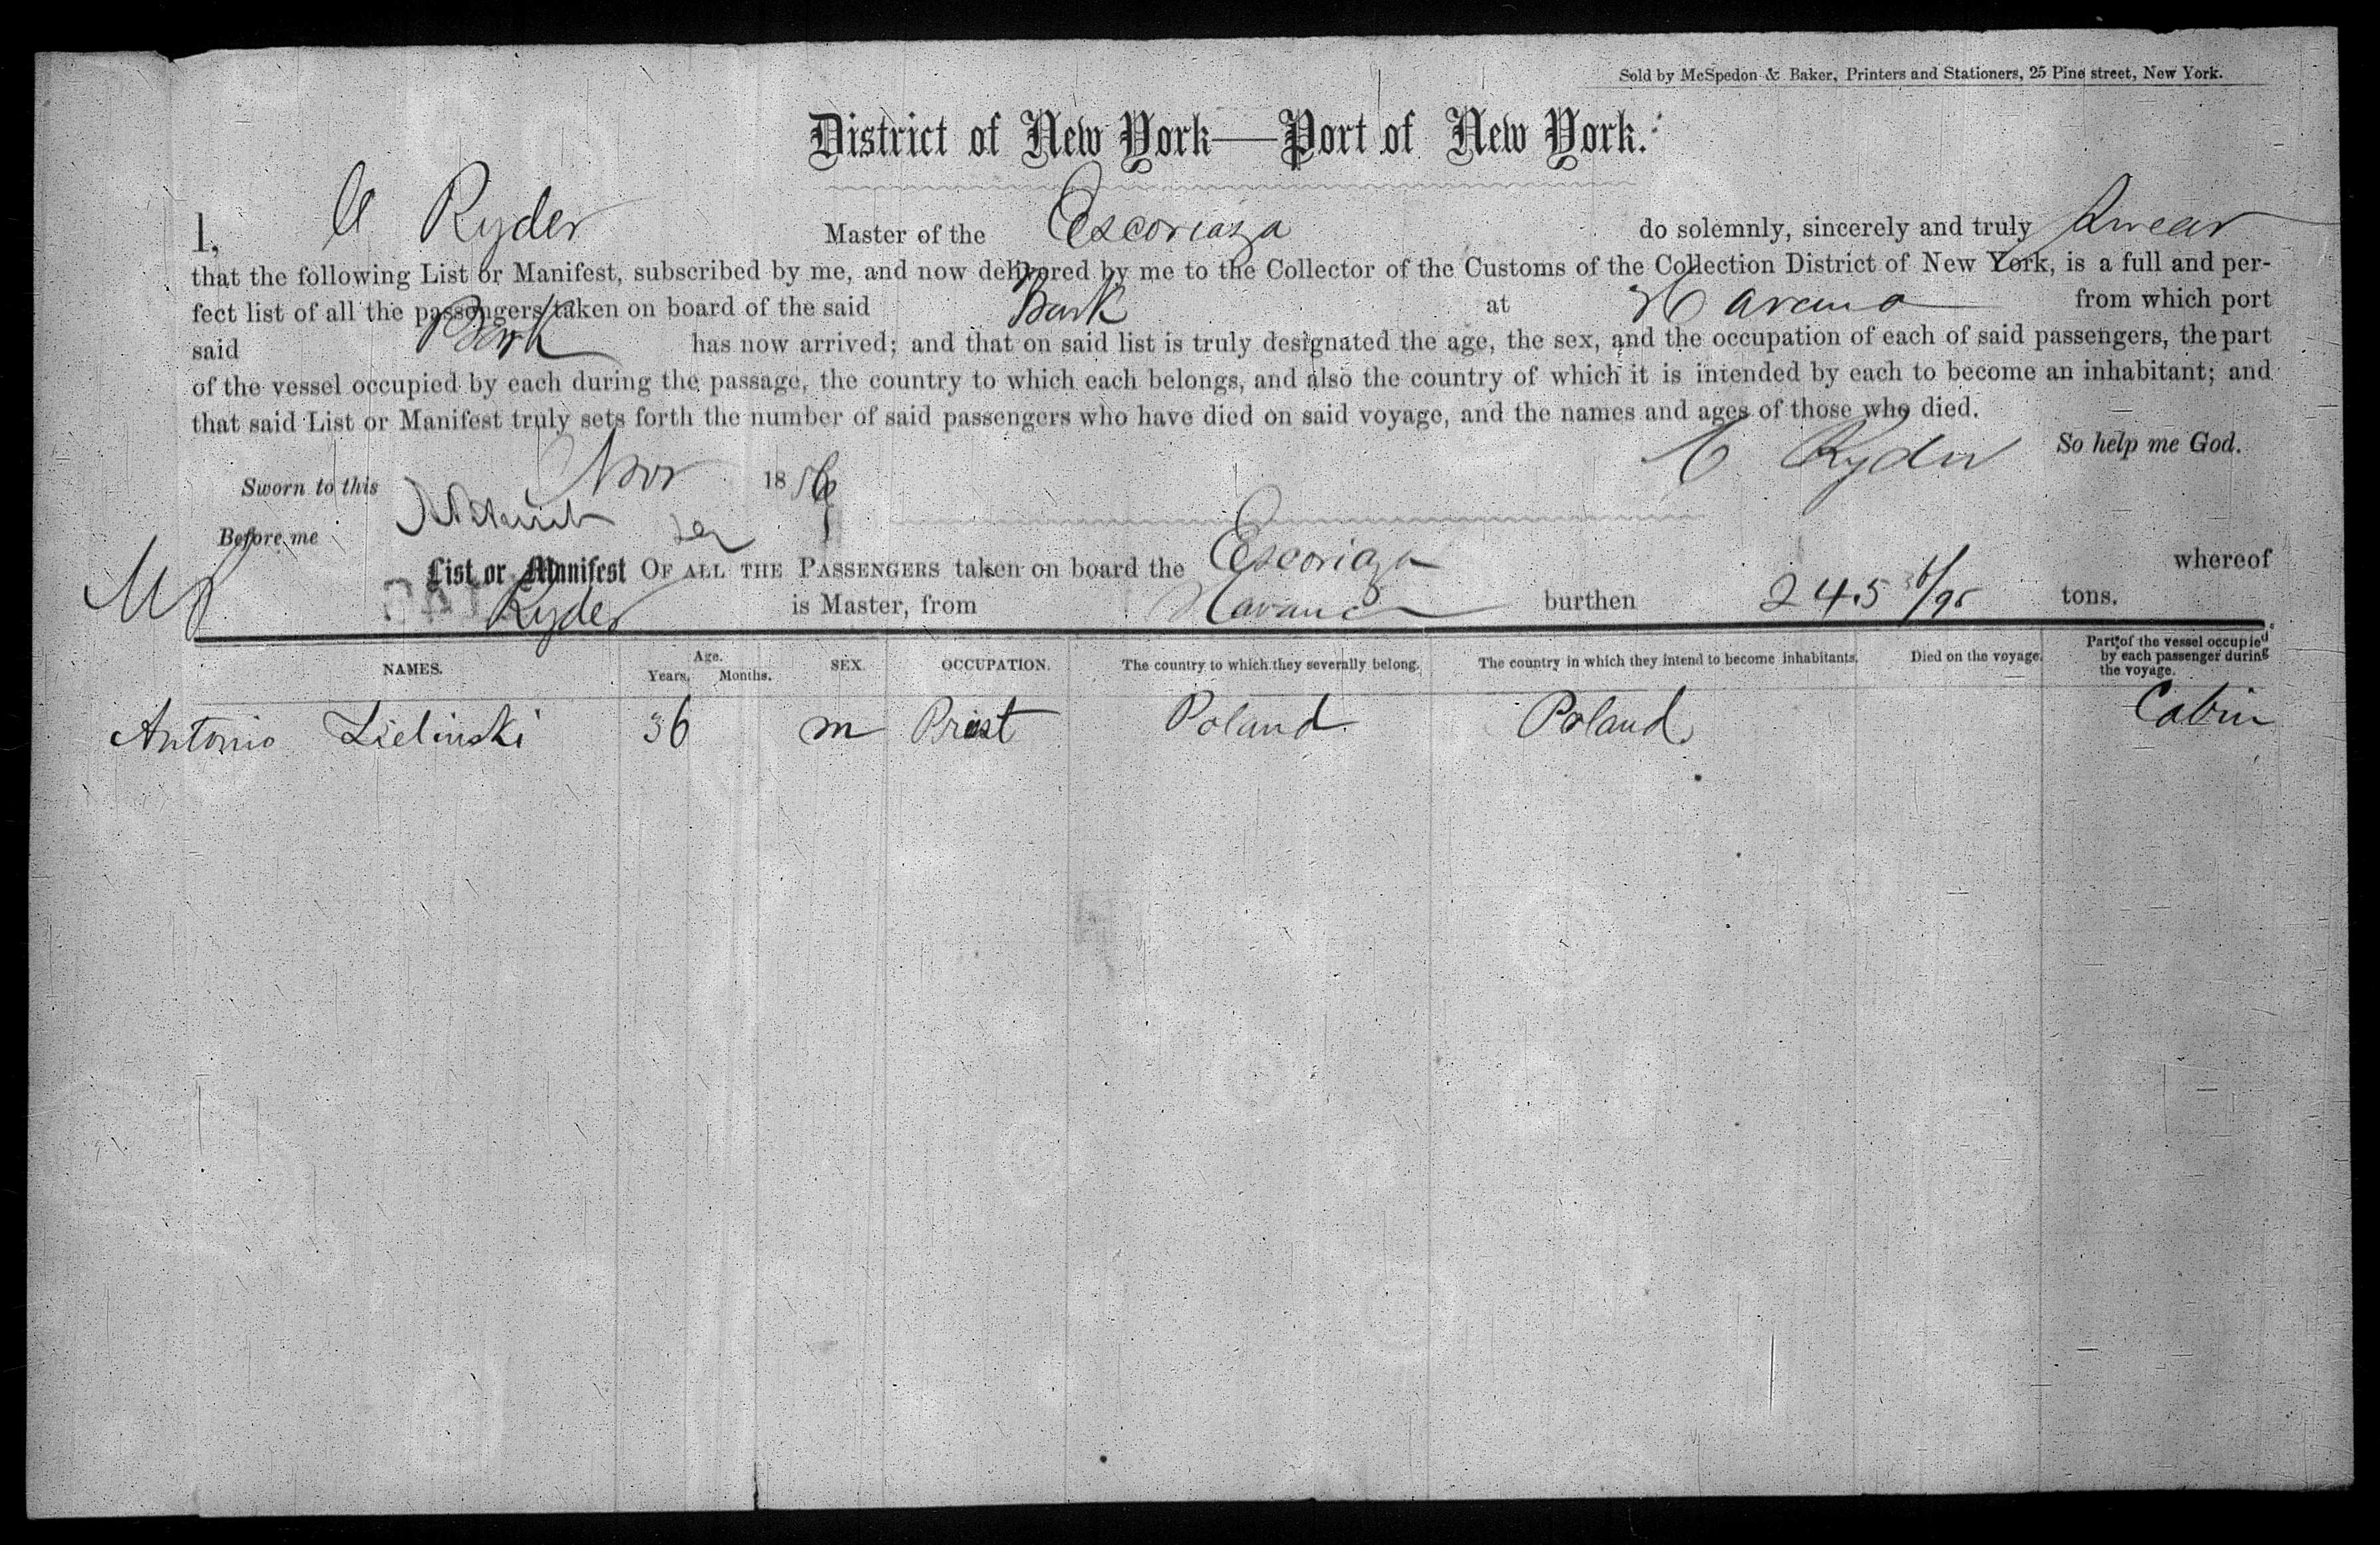 Sold by McSpedon & Baker, Printers and Stationers, 25 Pine street, New York.
District of New York—Port of New York.
I, C Ryder Master of the Escoriaza do solemnly, sincerely and truly swear
that the following List or Manifest, subscribed by me, and now delivered by me to the Collector of the Customs of the Collection District of New York, is a full and per-
fect list of all the passengers taken on board of the said Bark at Havana from which port
said Bark has now arrived; and that on said list is truly designated the age, the sex, and the occupation of each of said passengers, the part
of the vessel occupied by each during the passage, the country to which each belongs, and also the country of which it is intended by each to become an inhabitant; and
that said List or Manifest truly sets forth the number of said passengers who have died on said voyage, and the names and ages of those who died.
So help me God.
Sworn to this Nov 1856 C. Ryder
Before me
List or Manifest OF ALL THE PASSENGERS taken on board the Escoriaza whereof
Ryder is Master, from Havana burthen 245 /95 tons.
NAMES. Age. Years, Months. SEX. OCCUPATION. The country to which they severally belong. The country in which they intend to become inhabitants. Died on the voyage. Part of the vessel occupied by each passenger during the voyage.
Antonio Zielinski 36 m Priest Poland Poland Cabin